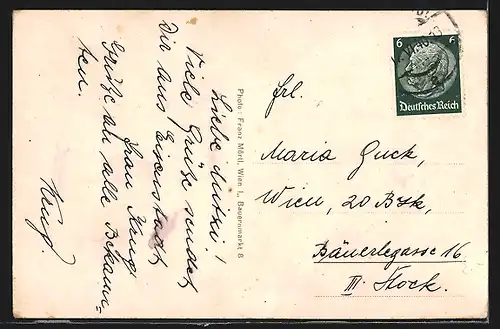 Liebe Mitzi!
Viele Grüße sendet
Dir aus Eisenstadt
Frau Krug
Grüße an alle Bekann-
ten.
Krug.
Photo: Franz Mörtl, Wien I., Bauernmarkt 8
6 6
Deutsches Reich
Frl.
Maria Guck,
Wien, 20 Bzk,
Bäuerlegasse 16
III. Stock.